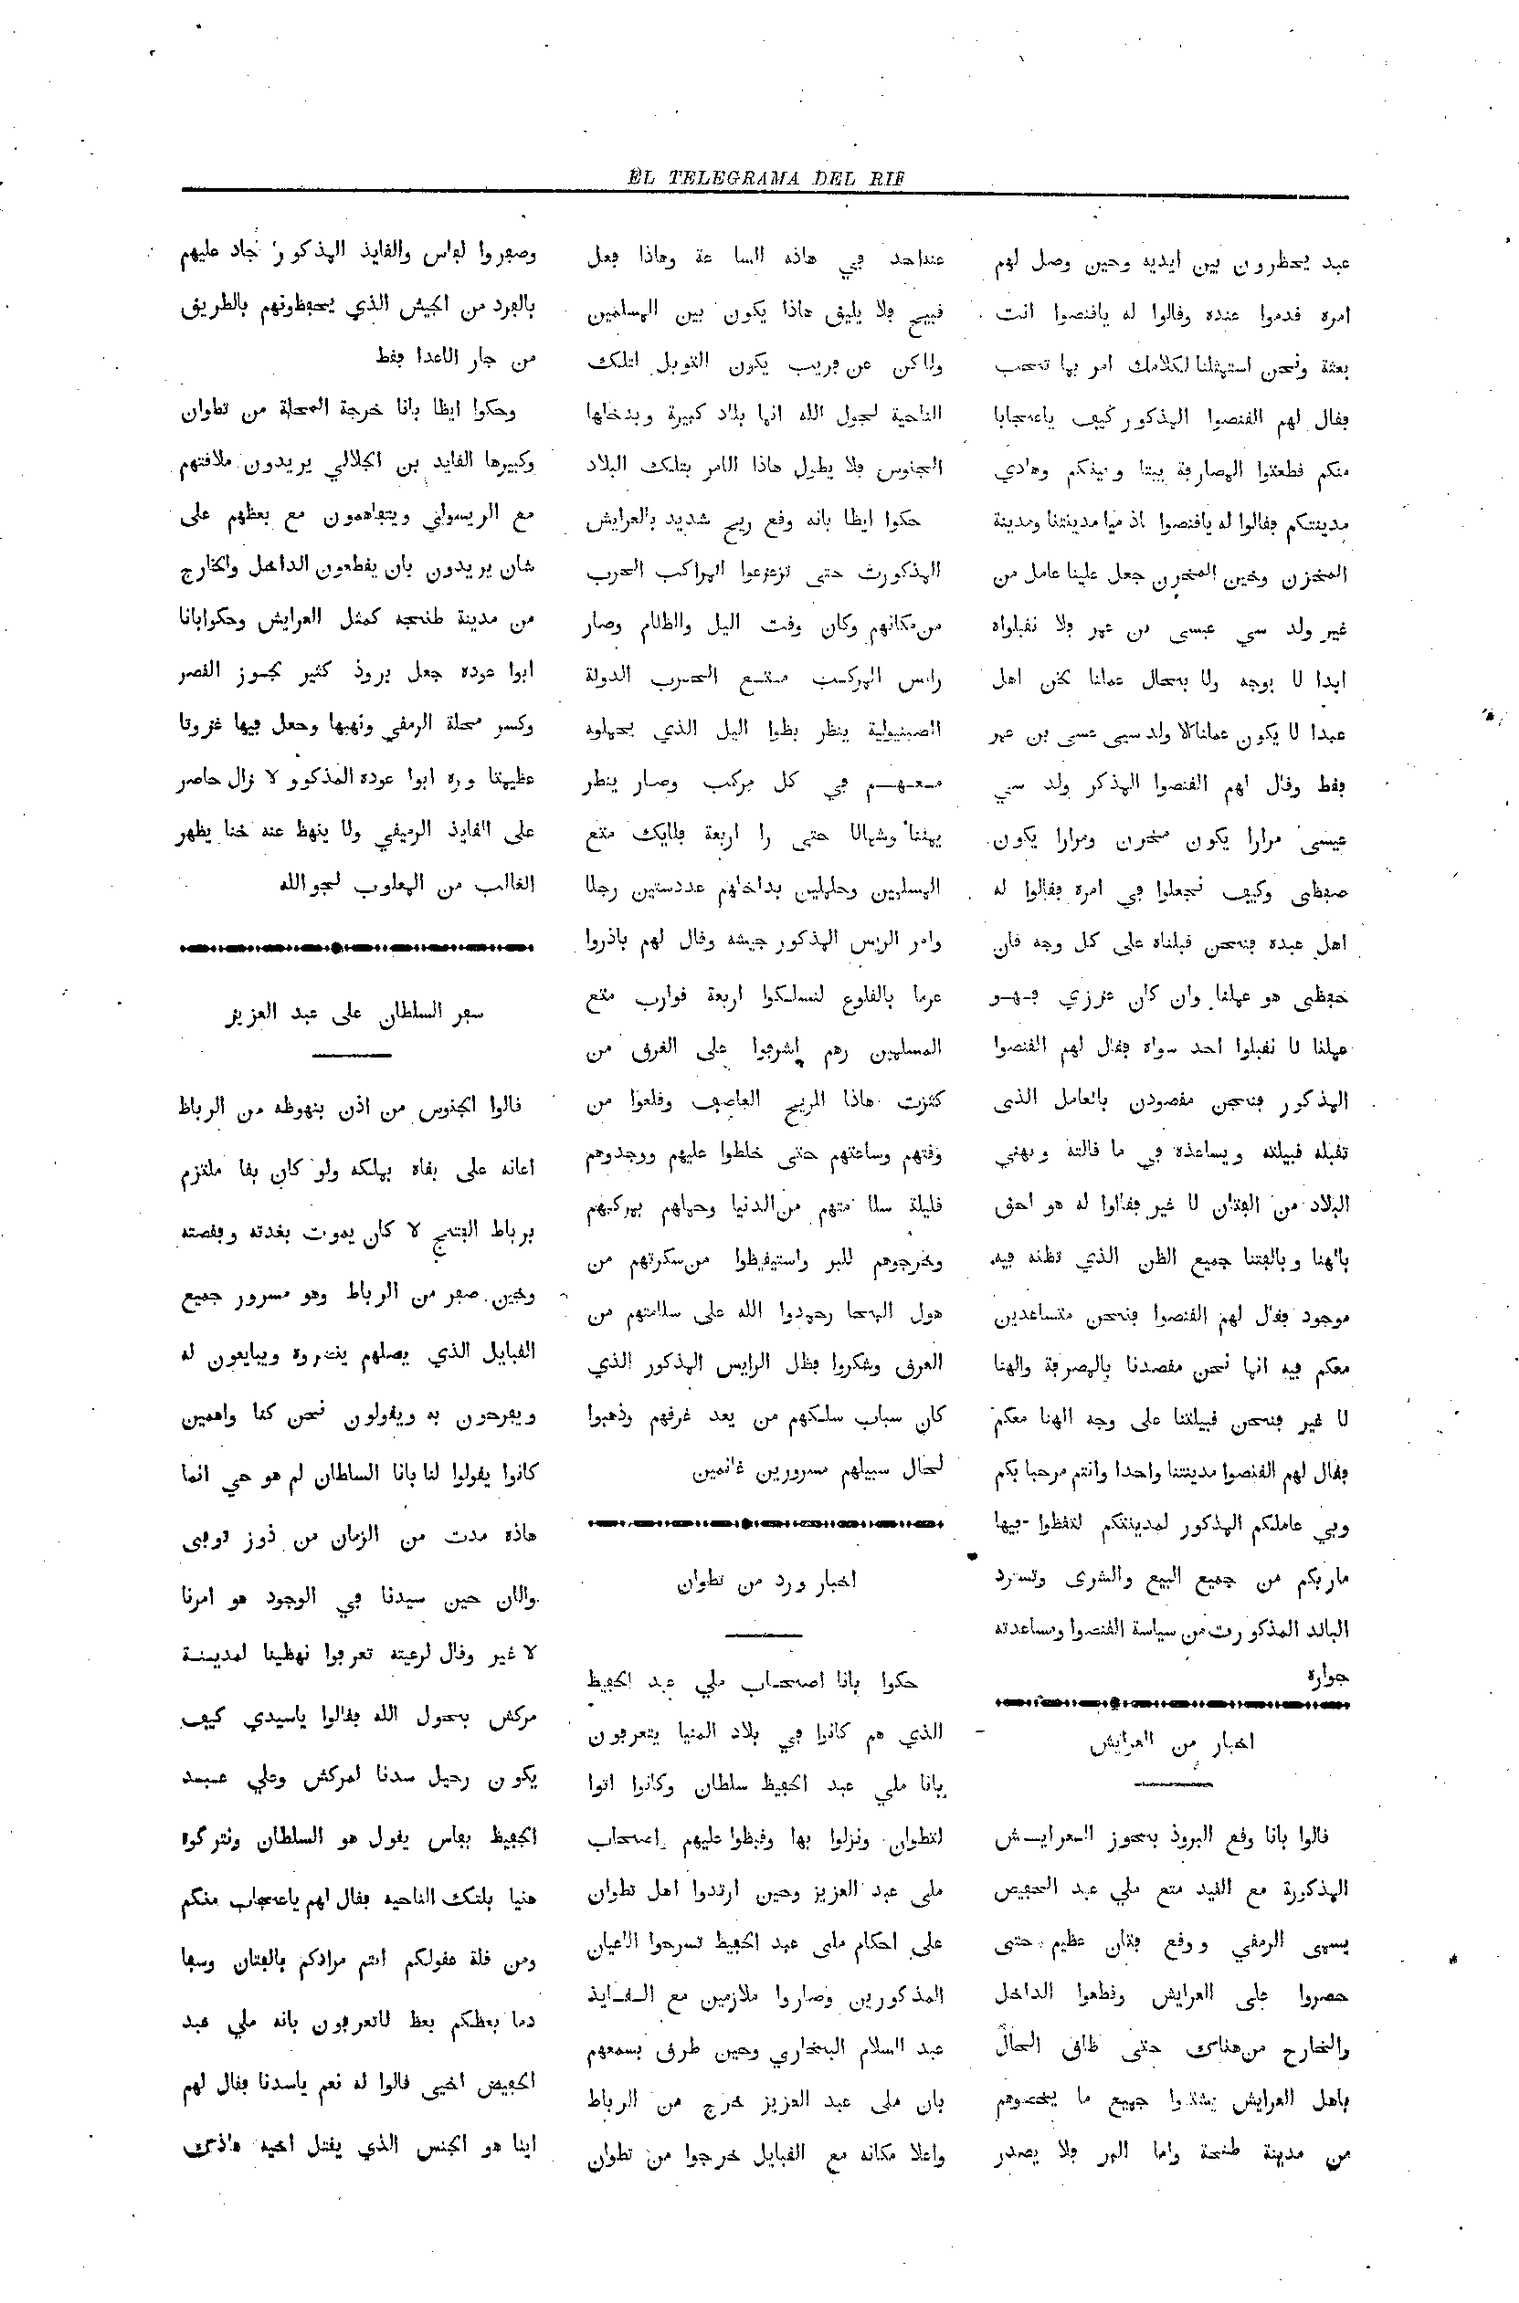 EL TELEGRAMA DEL RIF
عبد يحظرون بين ايديه وحين وصل لهم
امره فدموا عنده وفالوا له يافنصوا انت
بعثة ونحن استهثلنا لكلامك امر بها تحب
بفال لهم الفنصوا الهذكور كيف ياعجابا
منكم فطعتوا الهصارفة بيننا وبينكم وهادي
مدينتكم بفالوا له يافنصوا اذ ميا مدينتنا ومدينة
المخزن وحين المخزن جعل علينا عامل من
غير ولد سي عيسى بن عمر فلا نفبلواه
ابدا لا بوجه ولا بحال عملنا نحن اهل
عبدا لا يكون عملنا كلا ولد سي عسى بن عمر
بفط وفال لهم الفنصوا الهذكر ولد سي
عيسى مرارا يكون مخزن ومرارا يكون
حفظي وكيف نجعلوا في امره بفالوا له
اهل عبده فنحن فبلناه على كل وجه فان
حفظي هو عملنا وان كان عزيزي فهو
عملنا لا نفبلوا احد سواه بفال لهم الفنصوا
الهذكور فنحن مفصودن بالعامل الذي
تفبله فبيلته ويساعذه في ما فالته ويهني
البلاد من الفتان لا غير بفالوا له هو احق
بالهنا وبالفتنا جميع الظن الذي تظنه فيه
موجود بفال لهم الفنصوا فنحن متساعدين
معكم فيه انها نحن مفصدنا بالهصرفة والهنا
لا غير فنحن فبيلتنا على وجه الهنا معكم
بفال لهم الفنصوا مدينتنا واحدا وانتم مرحبا بكم
وبي عاملكم الهذكور لمدينتكم لتفظوا فيها
ماربكم من جميع البيع والشرى وتسرد
البلاد المذكورت من سياسة الفنصوا ومساعدته
جواره
اخبار من العرايش
فالوا بانا وفع البروذ بحوز العرايش
الهذكورة مع الفيد متع ملي عبد الحفيض
يسمى الرمفي ووفع بفتان عظيم حتى
حصروا على العرايش وفطعوا الداخل
والخارج من هناك حتى ظاق الحال
باهل العرايش جميع ما يخصوهم
من مدينة طنجة واما البر فلا يصدر
عنداحد في هاذه الساعة وهاذا فعل
فبيح فلا يليق هاذا يكون بين الهسلمين
ولاكن عن فريب يكون التوبل لتلك
الناحية لحول الله انها بلاد كبيرة ويدخلها
الجنوس فلا يطيل هاذا الامر بتلك البلاد
حكوا ايظا بانه وفع ريح شديد بالعرايش
الهذكورت حتى تزعزعوا الهراكب الحرب
من مكانهم وكان وفت اليل والظلام وصار
رايس الهركب متع الحرب الدولة
الصبنيولية ينظر بظوا اليل الذي يحملوه
معهم في كل مركب وصار ينظر
يهننا وشهالا حتى را اربعة فلايك متع
الهسلمين وحلهلين بداخلهم عددستين رجلا
وامر الريس الهذكور جيشه وفال لهم باذروا
عزما بالفلوع لنسلكوا اربعة فوارب متع
المسلمين رهم اشرفوا على الغرق من
كثرت هاذا الريح العاصف وفلعوا من
وفتهم وساعتهم حتى خلطوا عليهم ووجدوهم
فليلة سلامتهم من الدنيا وحملهم بمركبهم
وخرجوهم للبر واستيفيظوا من سكرتهم من
هول البحا رحمدوا الله على سلامتهم من
الغرق وشكروا بظل الرايس الهذكور الذي
كان سباب سلكهم من بعد غرفهم وذهبوا
لحال سبيلهم مسرورين غانمين
اخبار ورد من تطوان
حكوا بانا اصحاب ملي عبد الحفيظ
الذي هم كانوا في بلاد المنيا يتعرفون
بانا ملي عبد الحفيظ سلطان وكانوا اتوا
لتطوان ونزلوا بها وفبظوا عليهم اصحاب
ملى عبد العزيز وحين ارتدوا اهل تطوان
على احكام ملى عبد الحفيظ تسرحوا الاعيان
المذكورين وصاروا ملازمين مع الفايذ
عبد السلام البخاري وحين طرق بسمعهم
بان ملى عبد العزيز خرج من الرباط
واعلا مكانه مع الفبايل خرجوا من تطوان
وصفروا لفاس والفايذ الهذكور جاد عليهم
بالفرد من الجيش الذي يحفظونهم بالطريق
من جار الاعدا بفط
وحكوا ايظا بانا خرجة المحلة من تطوان
وكبيرها الفايد بن الجلالي يريدون ملافتهم
مع الريسولي ويتفاهمون مع بعظهم على
شان يريدون بان يفطعون الداخل والخارج
من مدينة طنجه كمثل العرايش وحكوابانا
ابوا عوده جعل بروذ كثير بحوز الفصر
وكسر محلة الرمفي ونهبها وجعل فيها غزوتا
عظيمتا وره ابوا عوده المذكوو لا نزال حاصر
على الفايذ الرميفي ولا ينهظ عنه حنا يظهر
الغالب من الهغلوب لحو الله
سفر السلطان على عبد العزيز
فالوا الجنوس من اذن بنهوظه من الرباط
اعانه على بفاه بهلكه ولو كان بفا ملتزم
برباط الفتح لا كان يموت بغدته وبفصته
وحين صفر من الرباط وهو مسرور جميع
الفبايل الذي يصلهم ينصروه ويبايعون له
ويفرحون به ويفولون نحن كنا واهمين
كانوا يفولوا لنا بانا السلطان لم هو حي انما
هاذه مدت من الزمان من ذوز توفى
والان حين سيدنا في الوجود هو امرنا
لا غير وفال لرعيته تعرفوا نهظينا لمدينة
مركش بحول الله بفالوا ياسيدي كيف
يكون رحيل سدنا لمركش وعلي عبد
الحفيظ بفاس يفول هو السلطان ونتركوه
هنيا بلتك الناحيه بفال لهم ياعجاب منكم
ومن فلة عفولكم انتم مرادكم بالفتان وسفا
دما بعظكم بعظ لاتعرفون بانه ملي عبد
الحفيض اخيى فالوا له نعم ياسدنا بفال لهم
اينا هو الجنس الذي يفتل اخيه هاذك